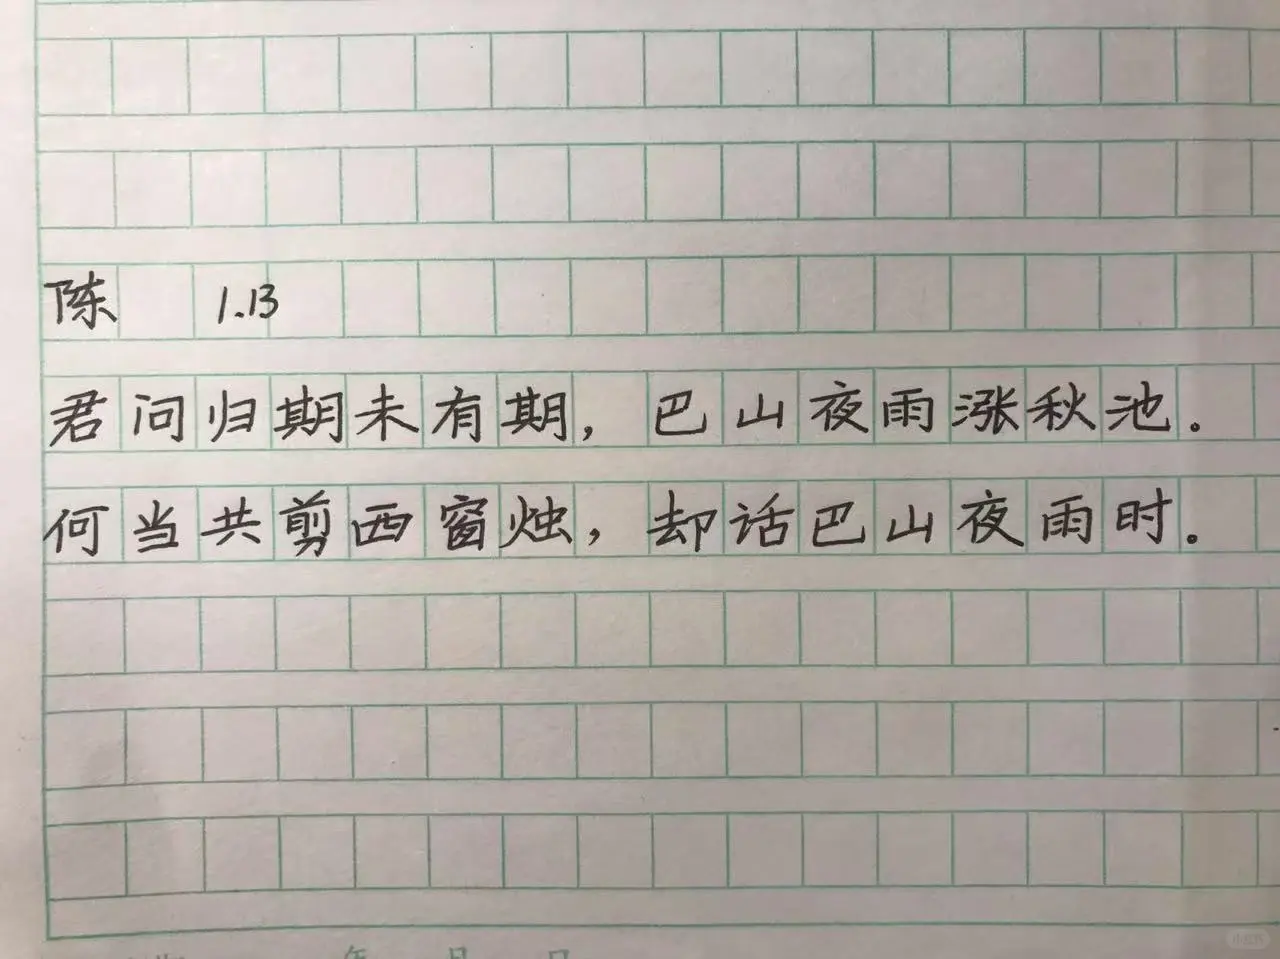 陈 1.13
君问归期未有期，巴山夜雨涨秋池.
何当共剪西窗烛，却话巴山夜雨时.
年 月 日
小红书